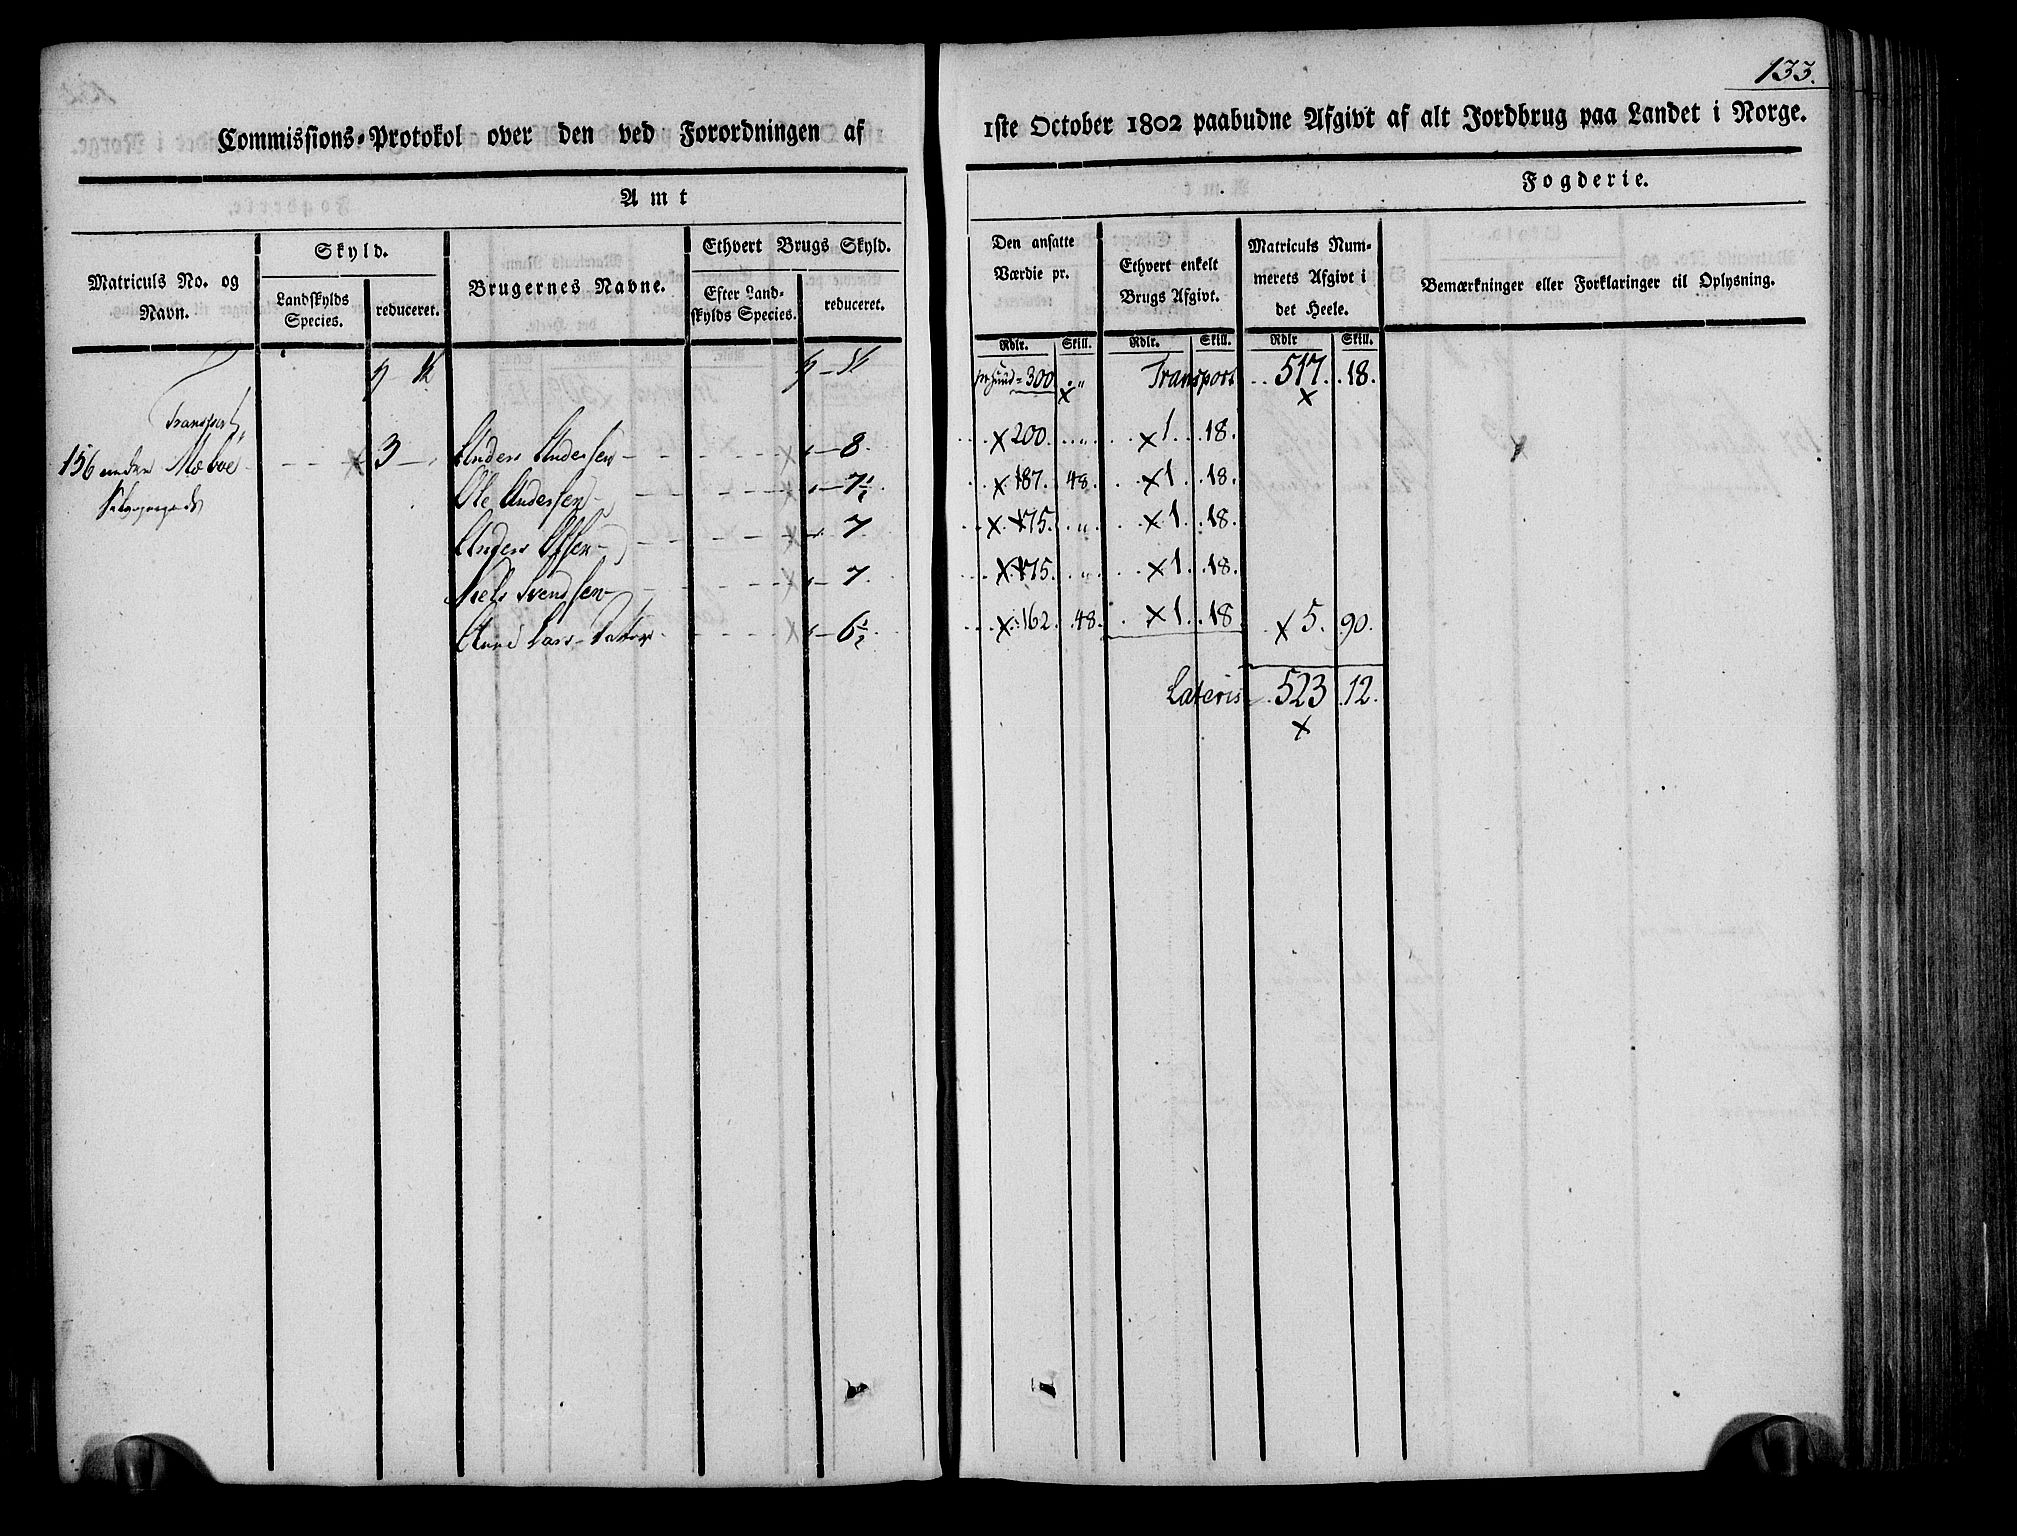 133.
Commissions-Protokol over den ved Forordningen af
1ste October 1802 paabudne Afgivt af alt Jordbrug paa Landet i Norge.
Amt
Fogderie.
Matriculs No. og Navn.
Skyld.
Landskylds Species.
reduceret.
Brugernes Navne.
Ethvert Brugs Skyld.
Efter Landskylds Species.
reduceret.
Den ansatte Værdie pr.
Ethvert enkelt Brugs Afgivt.
Matriculs Nummerets Afgivt i det Heele.
Bemærkninger eller Forklaringer til Oplysning.
Rdlr. Skill. Rdlr. Skill. Rdlr Skill.
300 „ Transport 517. 18.
Transport
156 Moboe 3 Anders Andersen 8 200. „ 1. 18.
Ole Andersen 7½ 187. 48. 1. 18.
Anders Olsen 7 175. „ 1. 18.
Niels Svendsen 7 175. „ 1. 18.
Anne Lars Datter 6½ 162. 48. 1. 18 5. 90.
Lateris 523 12.